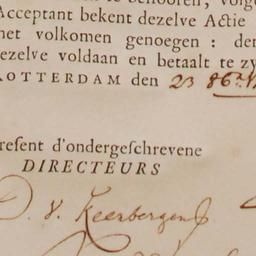 te behooren, volg
Acceptant bekent dezelve Actie
met volkomen genoegen : der
ezelve voldaan en betaalt te zy
ROTTERDAM den 23 86r
resent d'ondergeschrevene
DIRECTEURS
D. v. Keerbergen